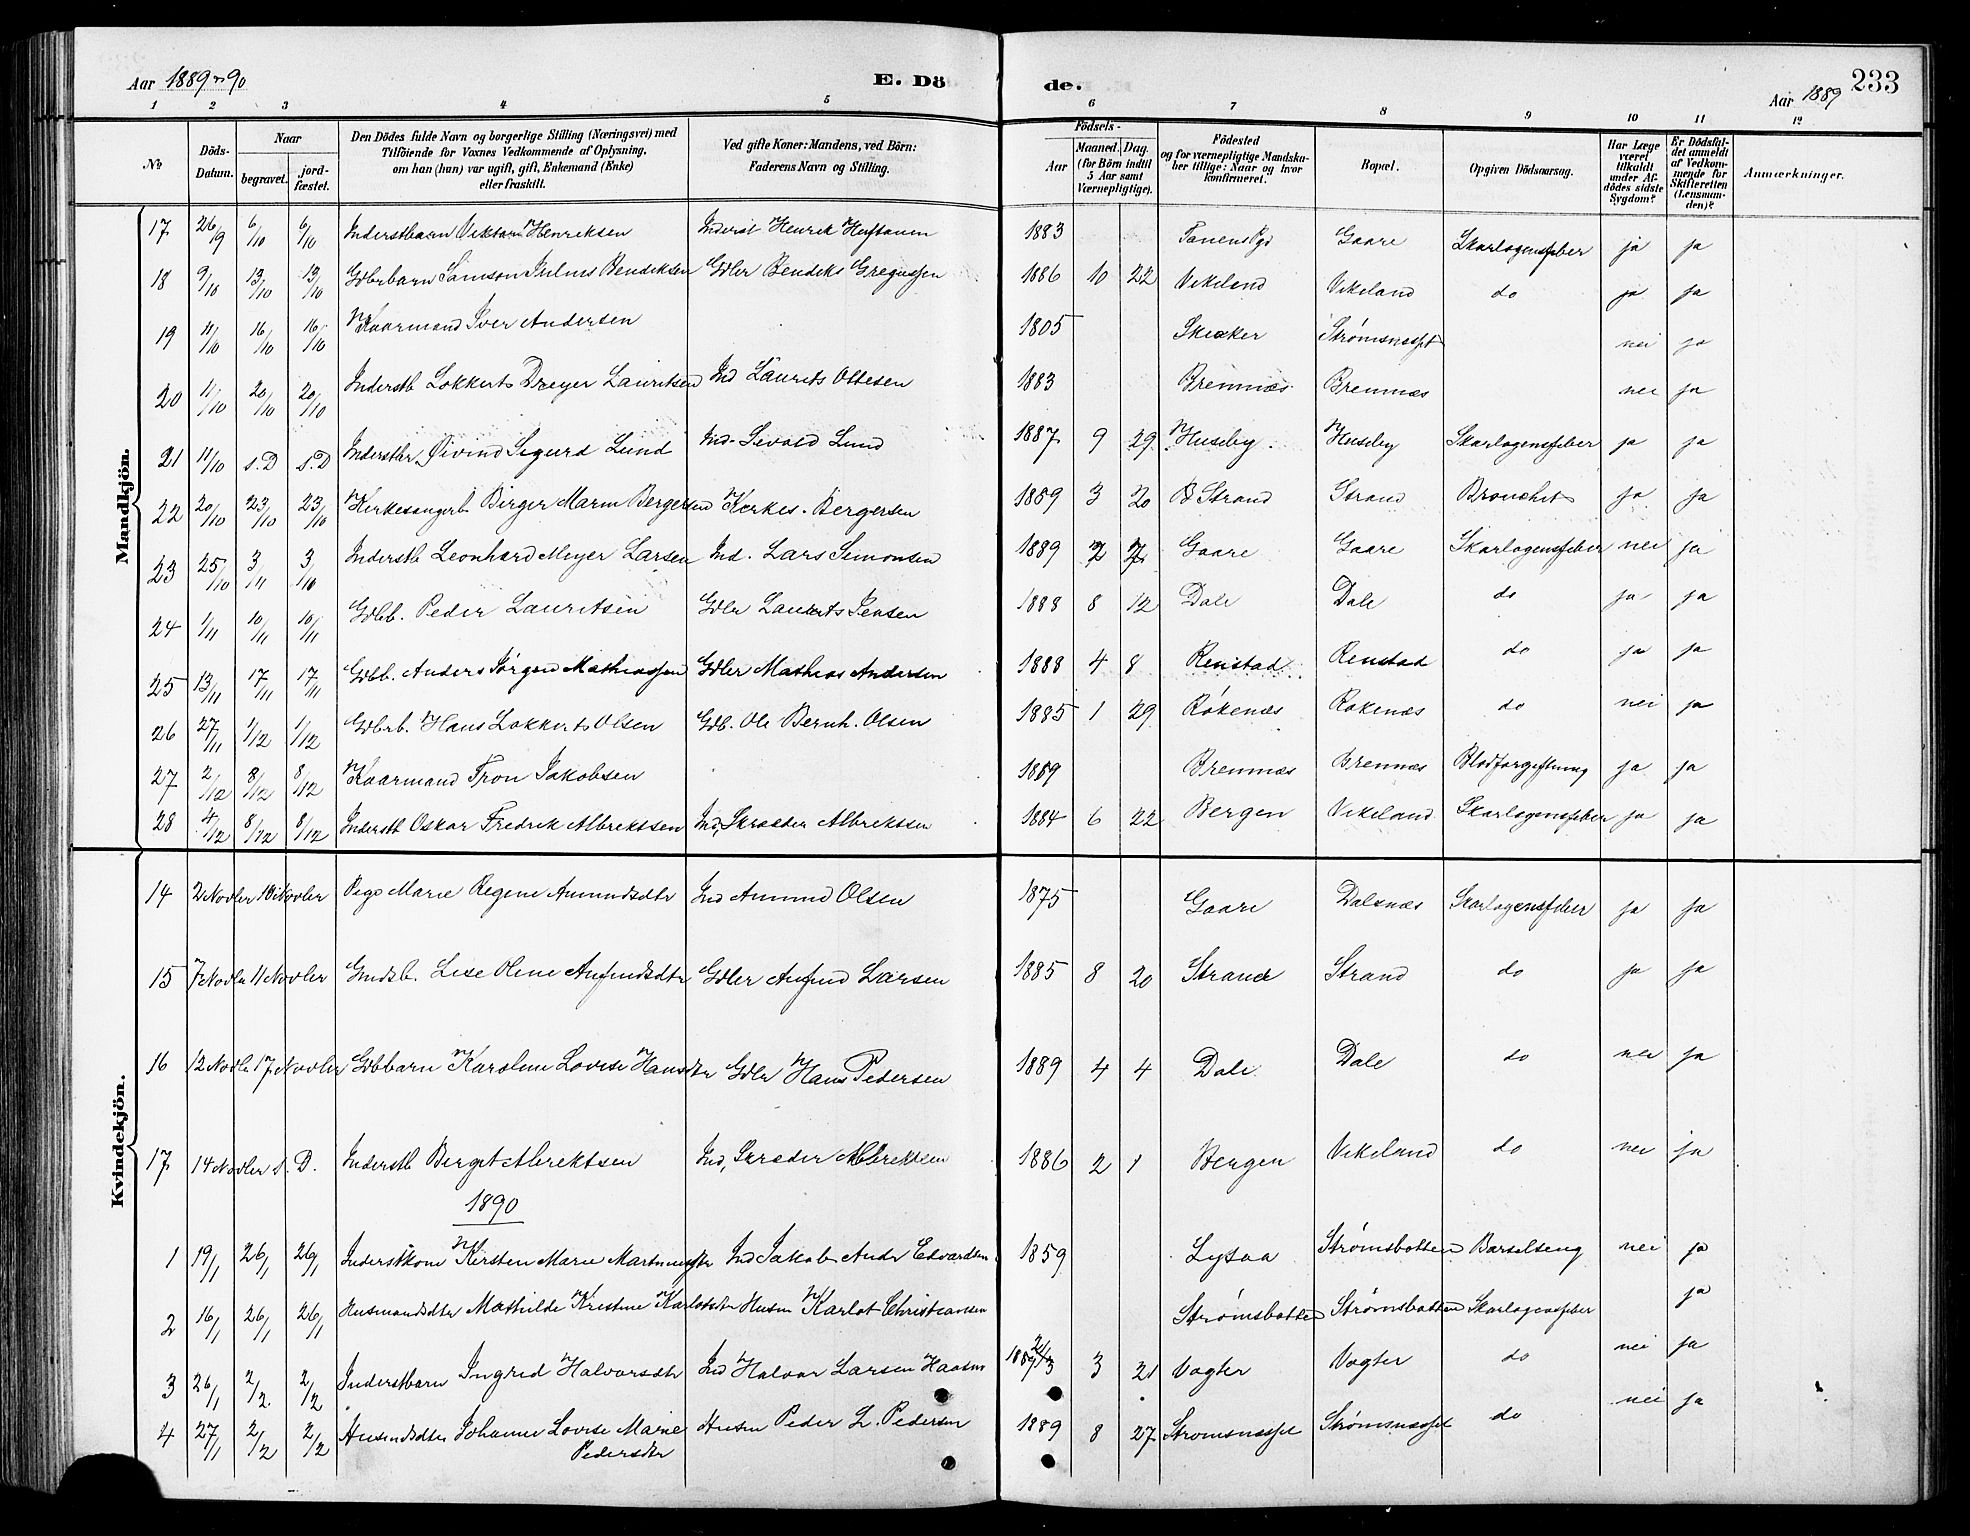 Aar 1889-90
E. Döde.
Aar 1889
233
1 2 3 4 5 6 7 8 9 10 11 12
No
Döds-Datum.
Naar
begravet.
jordfæstet.
Den Dödes fulde Navn og borgerlige Stilling (Næringsvei) med
Tilföiende for Voxnes Vedkommende af Oplysning,
om han (hun) var ugift, gift, Enkemand (Enke)
eller fraskilt.
Ved gifte Koner: Mandens, ved Börn:
Faderens Navn og Stilling.
Födsels-
Aar
Maaned.
Dag.
(for Börn indtil
5 Aar samt
Værnepligtige).
Födested
og for værnepligtige Mandskaber
tillige: Naar og hvor
konfirmeret.
Bopæl.
Opgiven Dödsaarsag.
Har Læge
været
tilkaldt
under Afdödes
sidste
Sygdom?
Er Dödsfaldet
anmeldt
af Vedkommende
for
Skifteretten
(Lensmanden)?
Anmærkninger.
Mandkjön.
17 26/9 6/10 6/10 Inderstbarn Henriksen Inderst Henrik 1883 Gaare Skarlagensfeber ja ja
18 9/10 13/10 13/10 Gdbrbarn Samson Julius Bendiksen Gdbr Bendiks Gregussen 1886 10 22 Vikeland Vikeland do ja ja
19 11/10 16/10 16/10 Kaarmand Iver Andersen 1805 Skieaker Strømsnesset nei ja
20 11/10 20/10 20/10 Inderstb Lokkerts Dreyer Lauritsen Ind Laurits Ottesen 1883 Bremnæs Bremnæs nei ja
21 11/10 s.D s.D Inderstbr Øivind Sigurd Lund Ind. Sevald Lund 1887 9 29 Huseby Huseby Skarlagensfeber ja ja
22 20/10 23/10 23/10 Kirkesangerb Birger Marin Bergersen Kirkes. Bergersen 1889 3 20 Strand Strand Bronchit ja ja
23 25/10 3/11 3/10 Inderstb Leonhard Meyer Larsen Ind. Lars Simonsen 1889 7 7 Gaare Gaare Skarlagensfeber nei ja
24 1/11 10/11 10/11 Gdbb. Peder Lauritsen Gdbr Laurits Jensen 1888 8 12 Dale Dale do ja ja
25 13/11 17/11 17/11 Gdbb. Anders Jørgen Mathiassen Gdbr Mathias Andersen 1888 4 8 Renstad Renstad do ja ja
26 27/11 1/12 1/12 Gdbrb. Hans Lokkerts Olsen Gdb. Ole Bernh. Olsen 1885 1 29 Røkenæs Røkenæs do nei ja
27 2/12 8/12 8/12 Kaarmand Tron Jakobsen Bremnæs Bremnæs Blodforgiftning ja ja
28 4/12 8/12 8/12 Inderstb Oskar Fredrik Albrektsen Ind, Skræder Albrektsen 1884 6 22 Bergen Vikeland Skarlagensfeber ja ja
Kvindekjön.
14 2 Novbr 10 Novbr Pige Marie Regine Amundsdtr Ind Amund Olsen 1875 Gaare Dalsnæs Skarlagensfeber ja ja
15 7 Novbr 11 Novbr Lise Oline Anfindsdtr Gdbr Anfind Larsen 1885 8 20 Strand Strand do ja ja
16 12 Novbr 17 Novbr Gdbbarn Karoline Lovise Hansdtr Gdbr Hans Pedersen 1889 4 4 Dale Dale do nei ja
17 14 Novbr s. D. Inderstb Berget Albrektsen Ind, Skræder Albrektsen 1886 2 1 Bergen Vikeland do nei ja
1890
1 19/1 26/1 26/1 Inderstkone Kirsten Marie Ind Jakob Andr Edvardsen 1859 Lysaa Strømsbotten Barselseng nei ja
2 16/1 26/1 26/1 Husmandsdtr Mathilde Kristine Karlotsdtr Husm Karlot Christiansen Strømsbotten Strømsbotten Skarlagensfeber ja
3 26/1 2/2 2/2 Inderstbarn Ingrid Halvorsdtr Ind Halvor Larsen 3 21 Vogter Vogter do nei ja
4 27/1 2/2 2/2 Husmdsdtr Johanne Lovise Marie Husm Peder L. Pedersen 1889 8 27 Strømsnesset Strømsnesset do nei ja
Pedersdtr